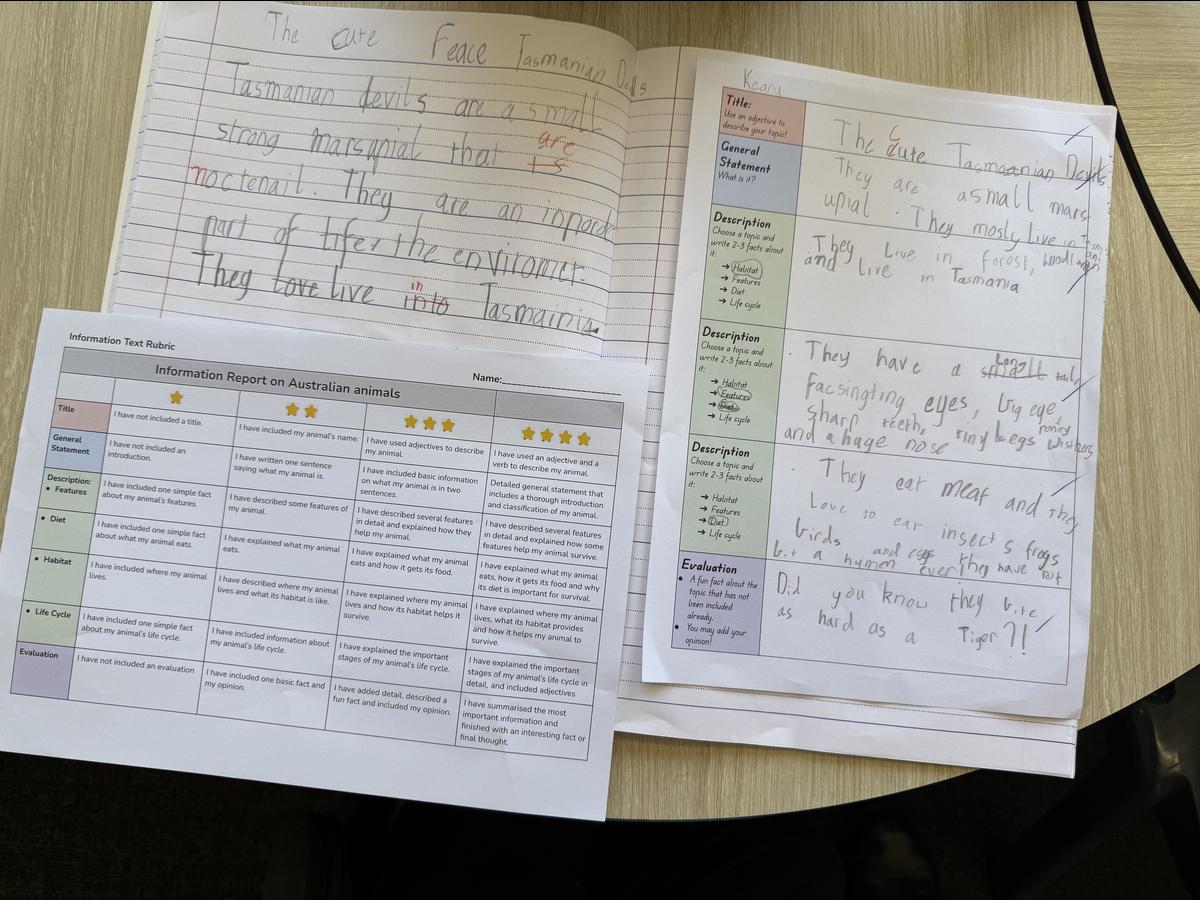 The cute Feace Tasmanian Devils
Tasmanian devils are a small
strong marsupial that are
is
noctenail. They are an inporda
part of life, the enviromet.
They love live in
into Tasmainia.
Information Text Rubric
Name:
Information Report on Australian animals
Title
I have not included a title.
I have included my animal's name.
I have used adjectives to describe my animal.
I have used an adjective and a verb to describe my animal.
General Statement
I have not included an introduction.
I have written one sentence saying what my animal is.
I have included basic information on what my animal is in two sentences.
Detailed general statement that includes a thorough introduction and classification of my animal.
Description:
• Features
I have included one simple fact about my animal's features.
I have described some features of my animal.
I have described several features in detail and explained how they help my animal.
I have described several features in detail and explained how some features help my animal survive.
• Diet
I have included one simple fact about what my animal eats.
I have explained what my animal eats.
I have explained what my animal eats and how it gets its food.
I have explained what my animal eats, how it gets its food and why its diet is important for survival.
• Habitat
I have included where my animal lives.
I have described where my animal lives and what its habitat is like.
I have explained where my animal lives and how its habitat helps it survive.
I have explained where my animal lives, what its habitat provides and how it helps my animal to survive.
• Life Cycle
I have included one simple fact about my animal's life cycle.
I have included information about my animal's life cycle.
I have explained the important stages of my animal's life cycle.
I have explained the important stages of my animal's life cycle in detail, and included adjectives
Evaluation
I have not included an evaluation
I have included one basic fact and my opinion.
I have added detail, described a fun fact and included my opinion.
I have summarised the most important information and finished with an interesting fact or final thought.
Keanu
Title:
Use an adjective to
describe your topic!
The Cute Tasmanian Devils
General
Statement
What is it?
They are a small mars
upial. They mosly live in
Description
Choose a topic and
write 2-3 facts about
it:
→ Habitat
→ Features
→ Diet
→ Life cycle
They Live in forest,
and live in Tasmania
Description
Choose a topic and
write 2-3 facts about
it:
→ Habitat
→ Features
→ Diet
→ Life cycle
They have a small Long tail,
facsingting eyes, big eye,
sharp teeth, tiny Legs
and a huge nose
Description
Choose a topic and
write 2-3 facts about
it:
→ Habitat
→ Features
→ Diet
→ Life cycle
They eat meat and they
Love to eat insects frogs
birds and eggs they have
bit a human ever
Evaluation
• A fun fact about the
topic that has not
been included
already.
• You may add your
opinion!
Did you know they bite
as hard as a Tiger?!